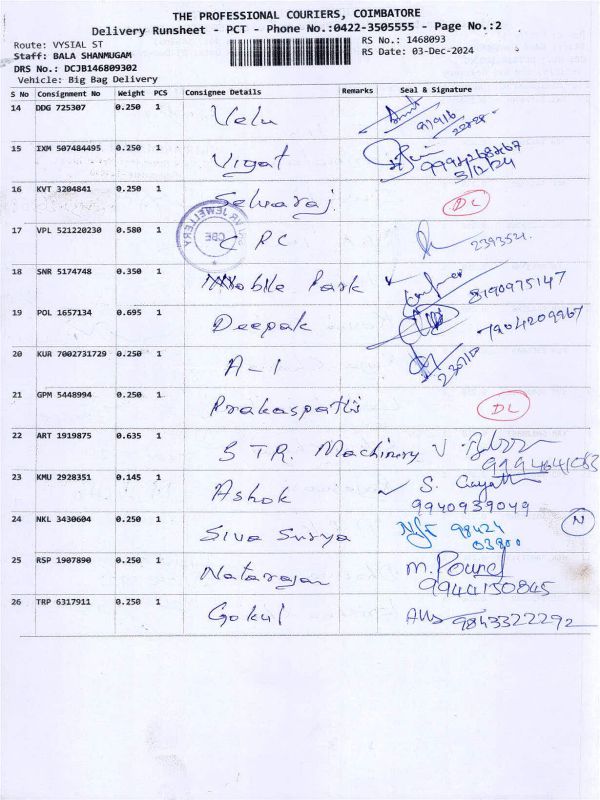 THE PROFESSIONAL COURIERS, COIMBATORE
Delivery Runsheet - PCT - Phone No.:0422-3505555 - Page No.:2
Route: VYSIAL ST
RS No.: 1468093
Staff: BALA SHANMUGAM
RS Date: 03-Dec-2024
DRS No.: DCJB146809302
Vehicle: Big Bag Delivery
S No Consignment No Weight PCS Consignee Details Remarks Seal & Signature
14 DDG 725307 0.250 1 Velu
15 IXM 507484495 0.250 1 Vigat
3/12/24
16 KVT 3204841 0.250 1 Selvaraj DL
17 VPL 521220230 0.580 1 CPC 2393521
JEWELLERY
CBE
18 SNR 5174748 0.350 1 Mobile Park 8190975147
19 POL 1657134 0.695 1 Deepak 7904209967
20 KUR 7002731729 0.250 1 A-1
21 GPM 5448994 0.250 1 DL
22 ART 1919875 0.635 1 STR. Machinery
9994641083
23 KMU 2928351 0.145 1 Ashok S. Gayathri
9940939049
24 NKL 3430604 0.250 1 Siva Surya 98424 N
03900
25 RSP 1907890 0.250 1 Natarajan M.
9944150845
26 TRP 6317911 0.250 1 Gokul 9843322292